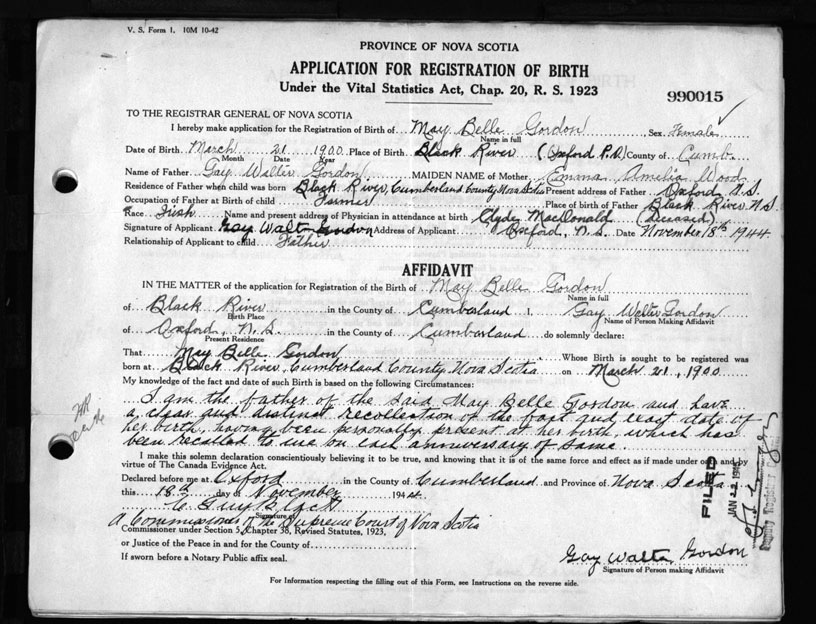 V. S. Form 1. 10M 10-42
PROVINCE OF NOVA SCOTIA
APPLICATION FOR REGISTRATION OF BIRTH
Under the Vital Statistics Act, Chap. 20, R. S. 1923
990015
TO THE REGISTRAR GENERAL OF NOVA SCOTIA
I hereby make application for the Registration of Birth of May Belle Gordon Sex Female
Name in full
Date of Birth March 21 1900 Place of Birth Black River (Oxford R.D) County of Cumb.
Month Date Year
Name of Father Gay Walter Gordon MAIDEN NAME of Mother Emma Amelia Wood
Residence of Father when child was born Black River, Cumberland County, Nova Scotia Present address of Father Oxford N.S.
Occupation of Father at Birth of child Farmer Place of birth of Father Black River N.S.
Race Irish Name and present address of Physician in attendance at birth Clyde MacDonald (Deceased)
Signature of Applicant Gay Walter Gordon Address of Applicant Oxford, N.S. Date November 18th 1944
Relationship of Applicant to child Father
AFFIDAVIT
IN THE MATTER of the application for Registration of the Birth of May Belle Gordon
Name in full
of Black River in the County of Cumberland I, Gay Walter Gordon
Birth Place Name of Person Making Affidavit
of Oxford, N.S. in the County of Cumberland do solemnly declare:
Present Residence
That May Belle Gordon Whose Birth is sought to be registered was
born at Black River, Cumberland County, Nova Scotia on March 21, 1900
My knowledge of the fact and date of such Birth is based on the following Circumstances:
I am the father of the said May Belle Gordon and have
a clear and distinct recollection of the fact and exact date of
her birth, having been personally present at her birth, which has
been recalled to me on each anniversary of same.
I make this solemn declaration conscientiously believing it to be true, and knowing that it is of the same force and effect as if made under oath and by
virtue of The Canada Evidence Act.
Declared before me at Oxford in the County of Cumberland and Province of Nova Scotia
this 18th day of November 1944
Signature of
A Commissioner of the Supreme Court of Nova Scotia
Commissioner under Section 5, Chapter 38, Revised Statutes, 1923,
or Justice of the Peace in and for the County of
If sworn before a Notary Public affix seal.
Gay Walter Gordon
Signature of Person making Affidavit
For Information respecting the filling out of this Form, see Instructions on the reverse side.
FILED
JAN 22 1945
Deputy Registrar